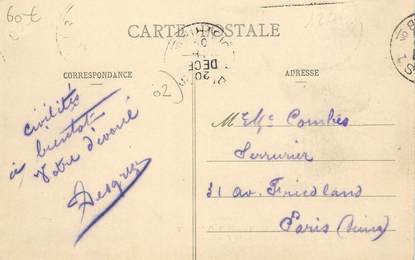 60€
CARTE POSTALE
CORRESPONDANCE
ADRESSE
02
civilités
à bientôt
Votre dévoué
Mr & Me Combes
Serrurier
31 av. Friedland
Paris
20
DECE